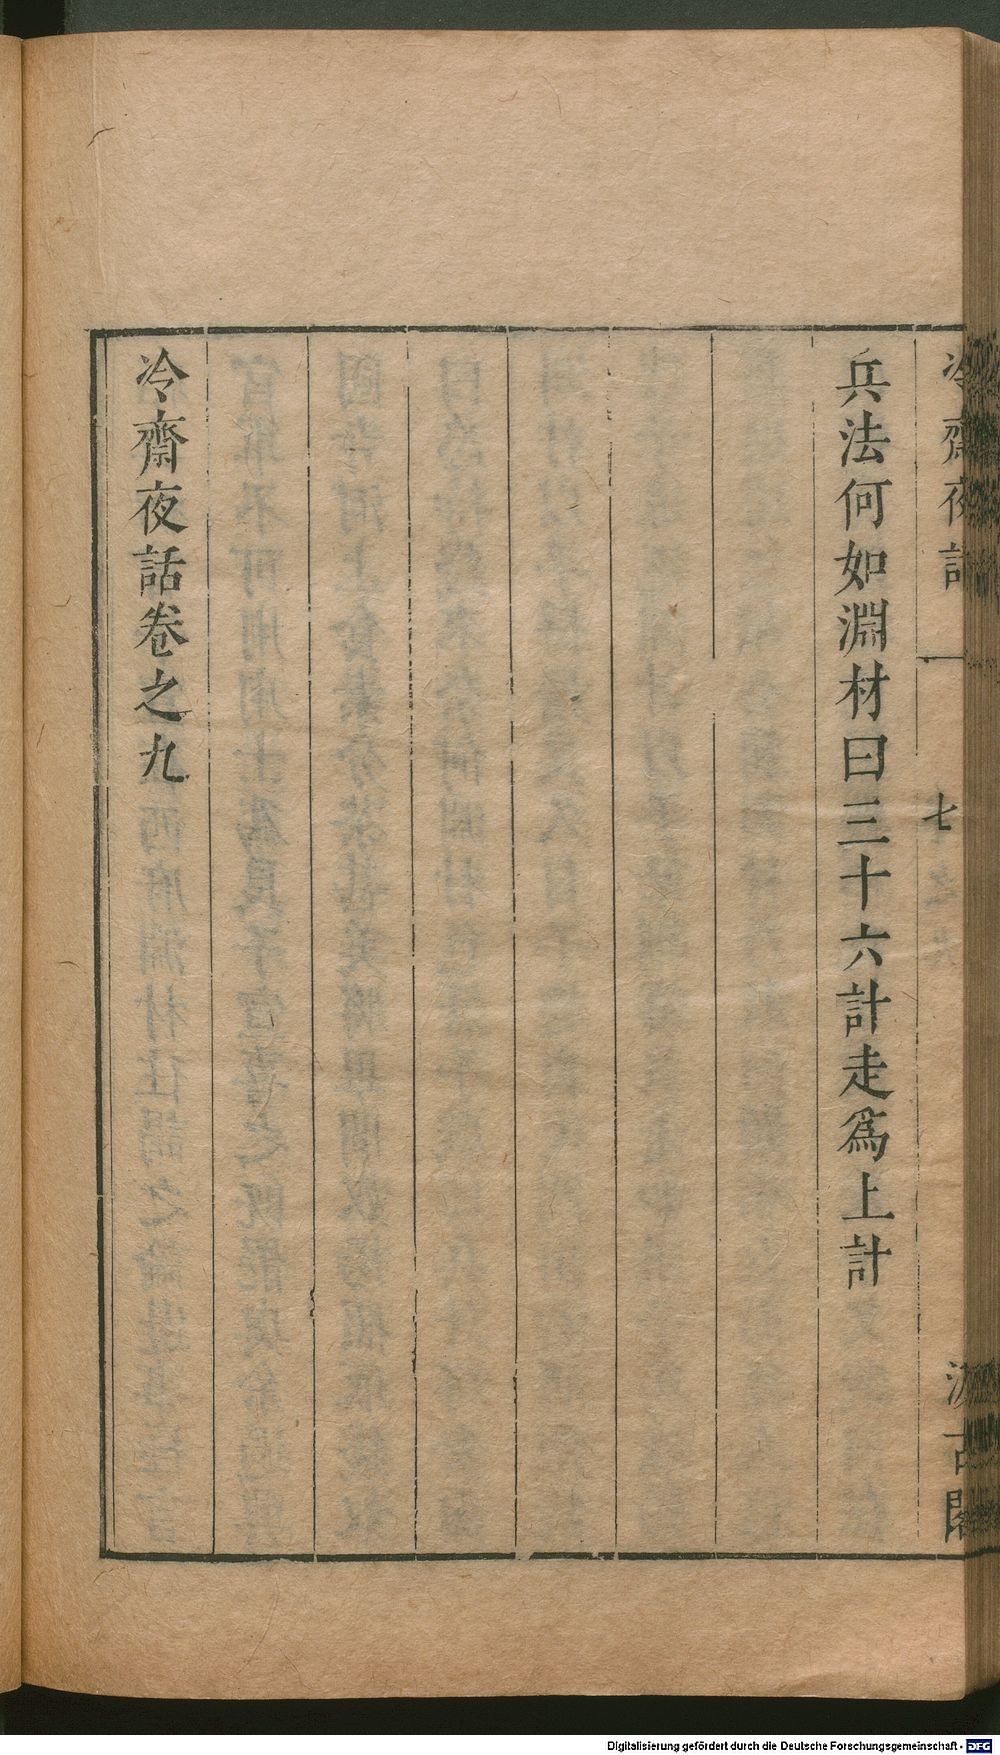 冷齋夜話
七
汲古閣
兵法何如淵材曰三十六計走爲上計
冷齋夜話卷之九
Digitalisierung gefördert durch die Deutsche Forschungsgemeinschaft - DFG